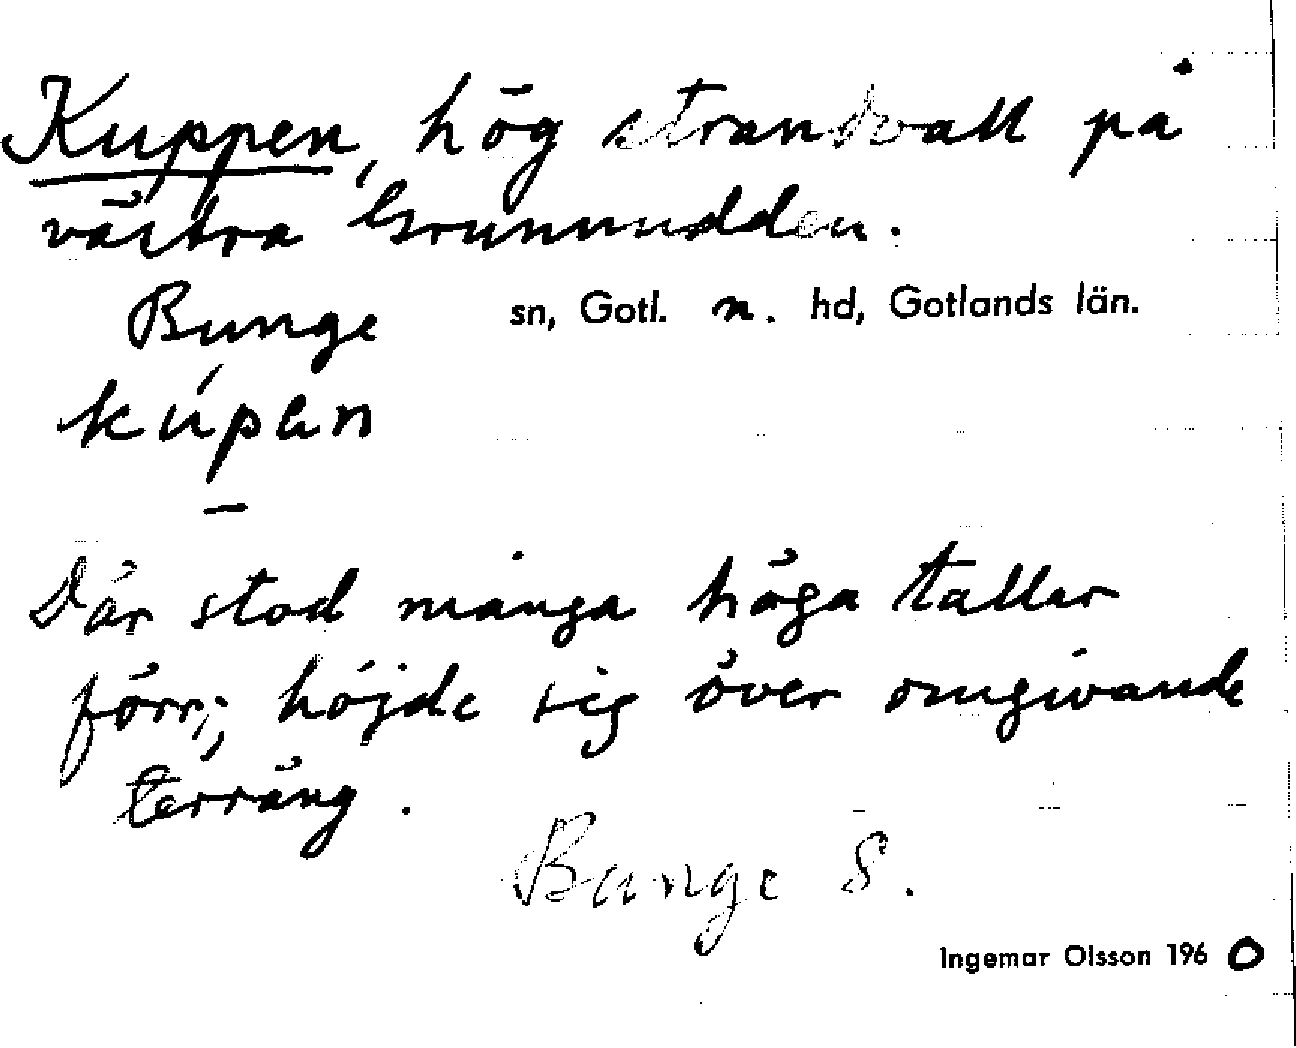 Kuppen, hög strandvall på
västra Grunnudden.
Bunge sn, Gotl. n. hd, Gotlands län.
kúpan
Där stod många höga tallar
förr; höjde sig över omgivande
terräng.
Bunge S.
Ingemar Olsson 1960